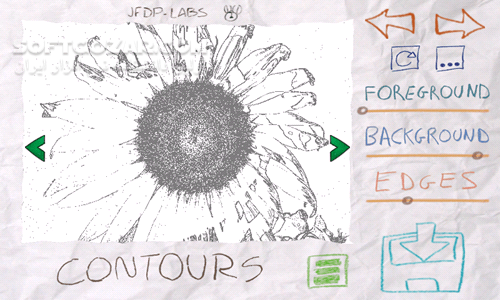 JFDP-LABS
SOFTGOZAR.COM
FOREGROUND
BACKGROUND
EDGES
CONTOURS